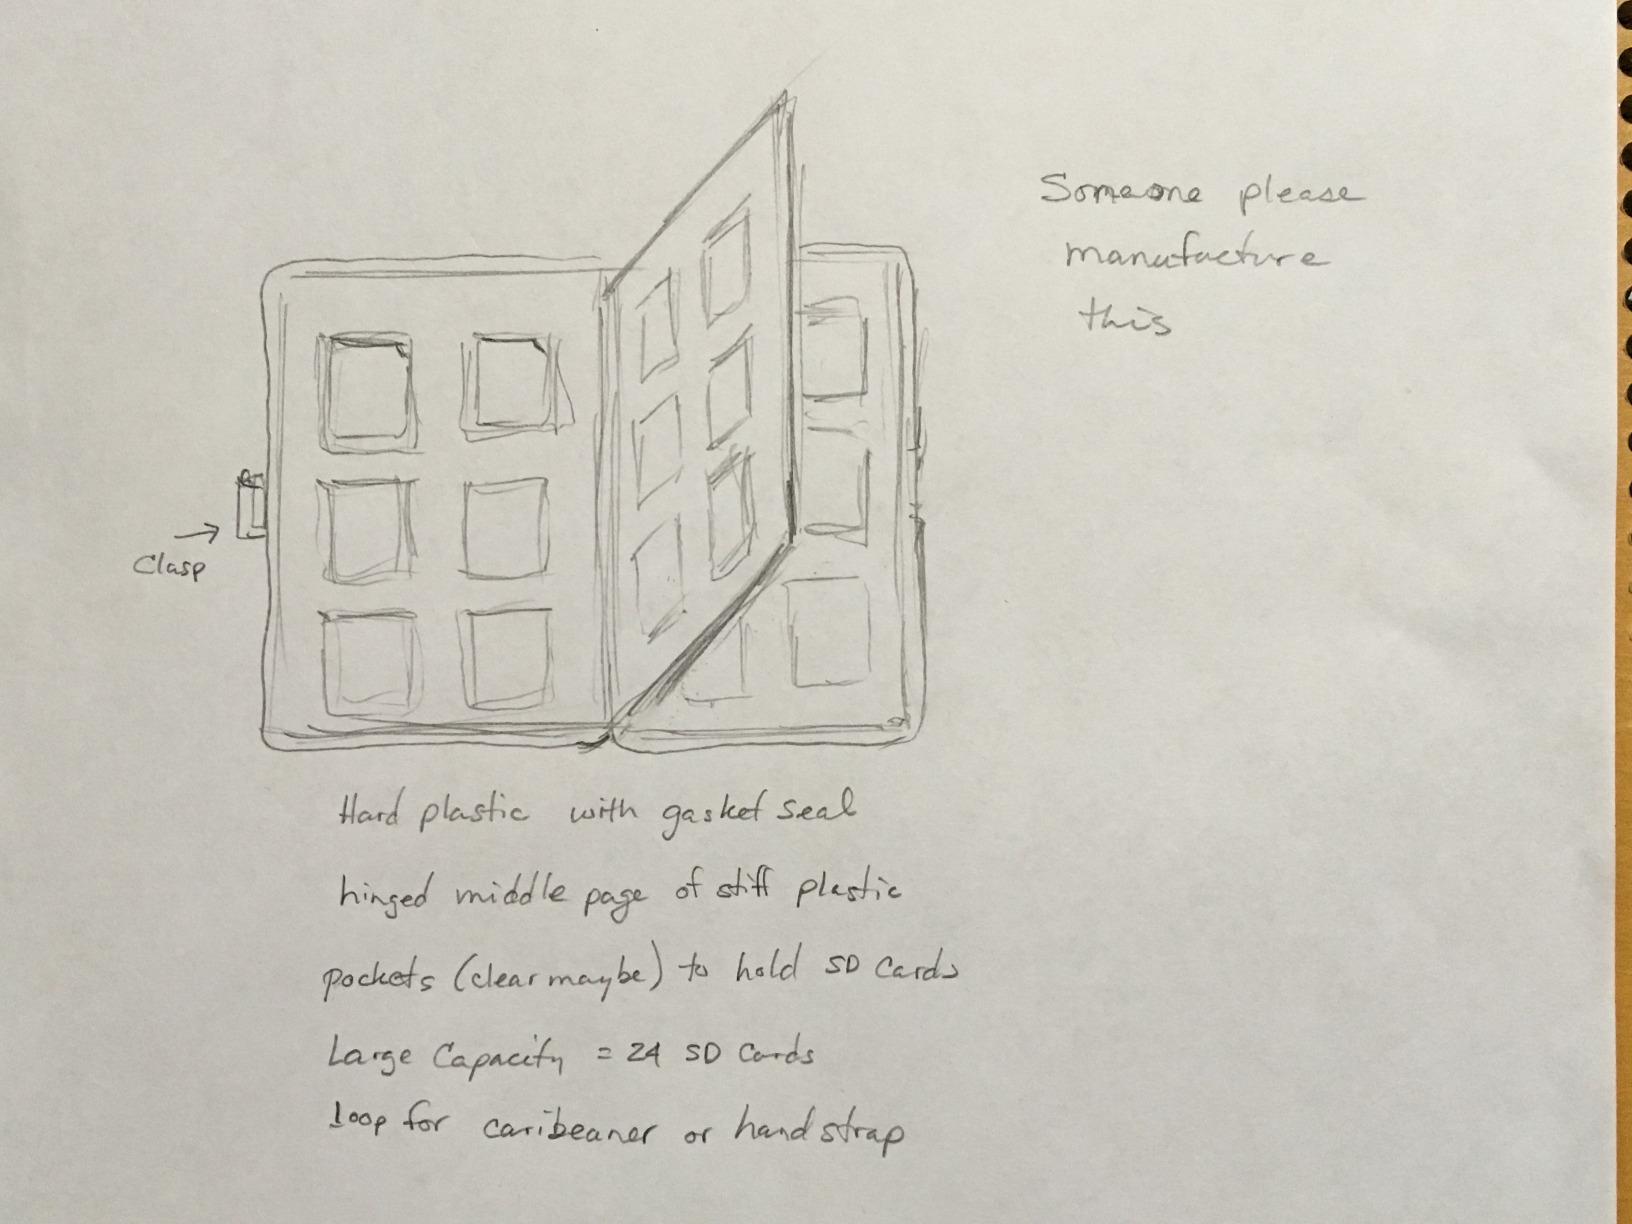 Someone please
manufacture
this
Clasp
Hard plastic with gasket seal
hinged middle page of stiff plastic
pockets (clear maybe) to hold SD cards
Large Capacity = 24 SD Cards
loop for caribeaner or hand strap